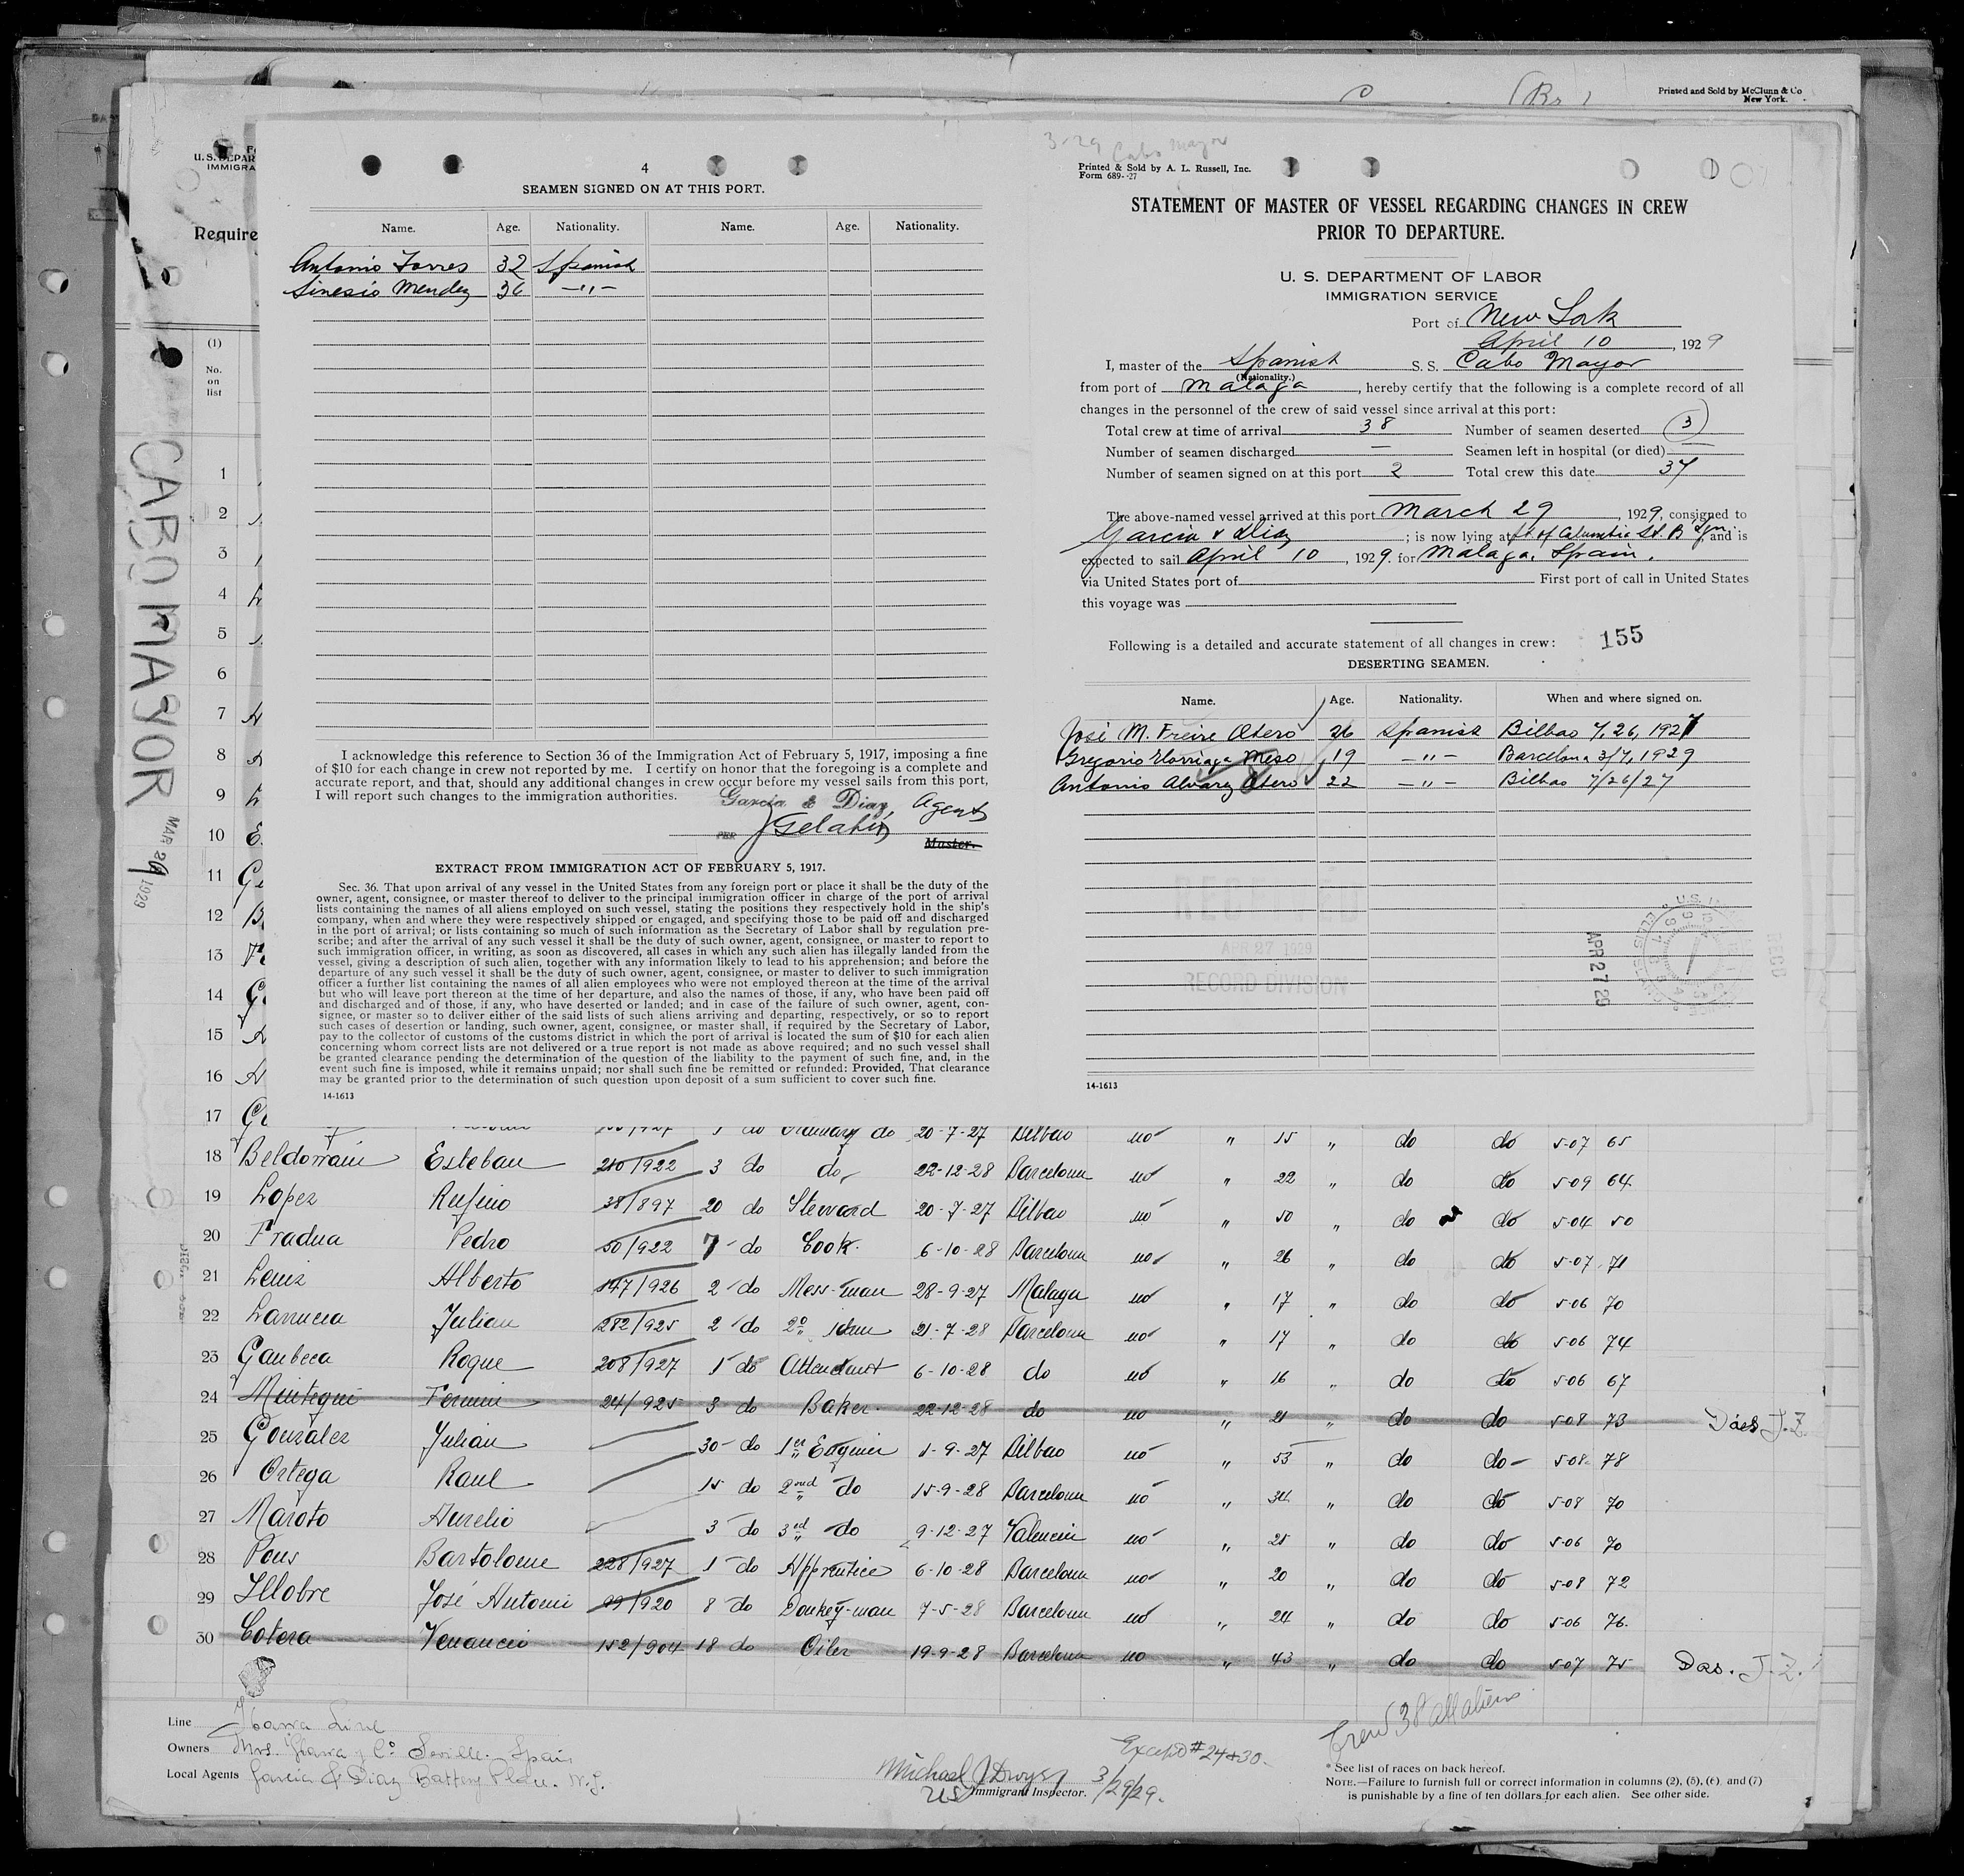 Printed and Sold by McClunn & Co
New York.
U. S. DEPAR
IMMIGRA
Require
(1)
No.
on
list
CABO MAYOR
MAR 29 1929
1
2
3
4
5
6
7
8
9
10
11
12
13
14
15
16
17
4
SEAMEN SIGNED ON AT THIS PORT.
Name. Age. Nationality. Name. Age. Nationality.
Antonio Torres 32 Spanish
Sinesio Mendez 36 —"—
I acknowledge this reference to Section 36 of the Immigration Act of February 5, 1917, imposing a fine
of $10 for each change in crew not reported by me. I certify on honor that the foregoing is a complete and
accurate report, and that, should any additional changes in crew occur before my vessel sails from this port,
I will report such changes to the immigration authorities.
Garcia & Diaz, Agents
PER
Master.
EXTRACT FROM IMMIGRATION ACT OF FEBRUARY 5, 1917.
Sec. 36. That upon arrival of any vessel in the United States from any foreign port or place it shall be the duty of the
owner, agent, consignee, or master thereof to deliver to the principal immigration officer in charge of the port of arrival
lists containing the names of all aliens employed on such vessel, stating the positions they respectively hold in the ship's
company, when and where they were respectively shipped or engaged, and specifying those to be paid off and discharged
in the port of arrival; or lists containing so much of such information as the Secretary of Labor shall by regulation pre-
scribe; and after the arrival of any such vessel it shall be the duty of such owner, agent, consignee, or master to report to
such immigration officer, in writing, as soon as discovered, all cases in which any such alien has illegally landed from the
vessel, giving a description of such alien, together with any information likely to lead to his apprehension; and before the
departure of any such vessel it shall be the duty of such owner, agent, consignee, or master to deliver to such immigration
officer a further list containing the names of all alien employees who were not employed thereon at the time of the arrival
but who will leave port thereon at the time of her departure, and also the names of those, if any, who have been paid off
and discharged and of those, if any, who have deserted or landed; and in case of the failure of such owner, agent, con-
signee, or master so to deliver either of the said lists of such aliens arriving and departing, respectively, or so to report
such cases of desertion or landing, such owner, agent, consignee, or master shall, if required by the Secretary of Labor,
pay to the collector of customs of the customs district in which the port of arrival is located the sum of $10 for each alien
concerning whom correct lists are not delivered or a true report is not made as above required; and no such vessel shall
be granted clearance pending the determination of the question of the liability to the payment of such fine, and, in the
event such fine is imposed, while it remains unpaid; nor shall such fine be remitted or refunded: Provided, That clearance
may be granted prior to the determination of such question upon deposit of a sum sufficient to cover such fine.
14-1613
3-29 Cabo Mayor
Printed & Sold by A. L. Russell, Inc.
Form 689--27
STATEMENT OF MASTER OF VESSEL REGARDING CHANGES IN CREW
PRIOR TO DEPARTURE.
U. S. DEPARTMENT OF LABOR
IMMIGRATION SERVICE
Port of New York
April 10, 1929
I, master of the Spanish S. S. Cabo Mayor
(Nationality.)
from port of Malaga, hereby certify that the following is a complete record of all
changes in the personnel of the crew of said vessel since arrival at this port:
Total crew at time of arrival 38 Number of seamen deserted 3
Number of seamen discharged — Seamen left in hospital (or died) —
Number of seamen signed on at this port 2 Total crew this date 37
The above-named vessel arrived at this port March 29, 1929, consigned to
Garcia & Diaz; is now lying at ft of Columbia St. B'lyn and is
expected to sail April 10, 1929. for Malaga, Spain.
via United States port of First port of call in United States
this voyage was
Following is a detailed and accurate statement of all changes in crew: 155
DESERTING SEAMEN.
Name. Age. Nationality. When and where signed on.
José M. Freire Otero 26 Spanish Bilbao 7, 26, 1927
Gregorio Elorriaga Meso 19 —"— Barcelona 3/7, 1929
Antonio Alvarez Otero 22 —"— Bilbao 7/26/27
RECEIVED
APR 27 1929
RECORD DIVISION
APR 27 29
REC'D
14-1613
20-7-27 Bilbao no " 15 " do do 5-07 65
18 Beldorrain Esteban 210/922 3 do do 22-12-28 Barcelona no " 22 " do do 5-09 64
19 Lopez Rufino 38/897 20 do Steward 20-7-27 Bilbao no " 50 " do do 5-04 50
20 Fradua Pedro 50/922 7 do Cook. 6-10-28 Barcelona no " 26 " do do 5-07 71
21 Leniz Alberto 147/926 2 do Mess-man 28-9-27 Malaga no " 17 " do do 5-06 70
22 Larrucea Julian 282/925 2 do 2º idem 21-7-28 Barcelona no " 17 " do do 5-06 74
23 Gaubeca Roque 208/927 1 do Attendant 6-10-28 do no " 16 " do do 5-06 67
24 Mintegui Fermin 24/925 3 do Baker 22-12-28 do no " 21 " do do 5-08 73 Does J.Z.
25 Gonzalez Julian 30 do 1er Enginer 1-9-27 Bilbao no " 53 " do do 5-08 78
26 Ortega Raul 15 do 2nd do 15-9-28 Barcelona no " 34 " do do 5-08 70
27 Maroto Aurelio 3 do 3rd do 9-12-27 Valencia no " 25 " do do 5-06 70
28 Pons Bartolome 228/927 1 do Apprentice 6-10-28 Barcelona no " 20 " do do 5-08 72
29 Illobre José Antoni 99/920 8 do Donkey-man 7-5-28 Barcelona no " 24 " do do 5-06 76.
30 Cotera Venancio 152/904 18 do Oiler 19-9-28 Barcelona no " 43 " do do 5-07 75 Das. J.Z.
Crew 38 all aliens
Line Ybarra Line
Owners Mrs. Ybarra y Co Seville. Spain
Local Agents Garcia & Diaz Battery Place. N.Y.
Except # 24 & 30.
Michael J Dwyer 3/29/29.
US Immigrant Inspector.
* See list of races on back hereof.
NOTE.—Failure to furnish full or correct information in columns (2), (5), (6) and (7)
is punishable by a fine of ten dollars for each alien. See other side.